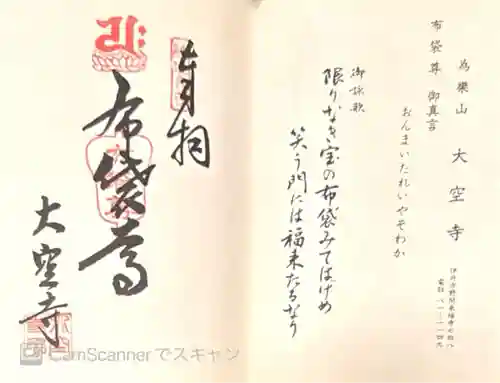 奉拝
布袋尊
大空寺
布袋尊 御真言
為樂山 大空寺
おんまいたれいやそわか
御詠歌
限りなき宝の布袋みてはけめ
笑う門には福来たるなり
CamScannerでスキャン